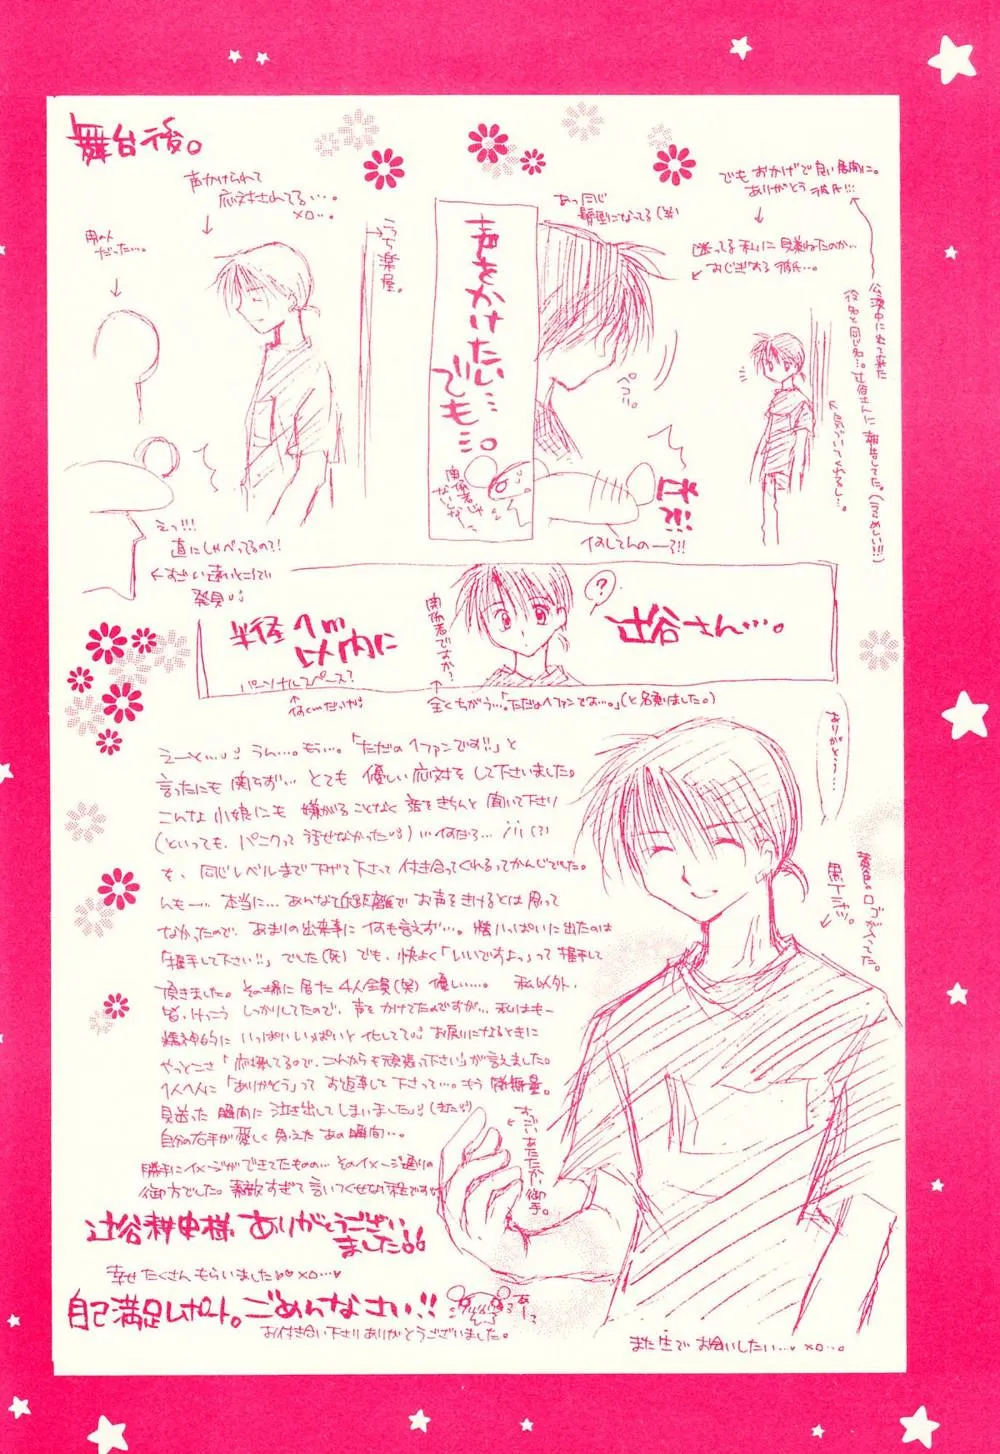 舞台後。
声かけられて
応対されてる…。
×□…。
男の人
だった…。
うち楽屋。
えっ!!!
直にしゃべってるの?!
すごい遠いところで
発見
声をかけたい…
でも…。
関係者じゃ
ないしなー
あっ同じ
髪型になってる(笑)
ペコリ。
なしてんのーー?!!
でもおかげで良い展開に。
ありがとう彼氏!!!
迷ってる私に見兼ねたのか…
おじぎする彼氏…。
公演中に
役名と同じ名…。辻谷さんに報告してた。(うらめしい!!)
半径1m
以内に
パーソナルスペース?
関係者ですか?
?
辻谷さん…。
全くちがう…。「ただの1ファンです…。」(と名乗りました。)
えーと…。うん…。もう…。「ただの1ファンです!!」と
言ったにも関らず…とても優しい応対をして下さいました。
こんな小娘にも嫌がることなく話をきちんと聞いて下さり
(といっても、パニクって話せなかった)…何だろ…(?)
を、同じレベルまで下げて下さって付き合ってくれるってかんじでした。
んもー…本当に…あんな近距離でお声をきけるとは思って
なかったので、あまりの出来事に何も言えず…。精いっぱいに出たのは
「握手して下さい!!」でした(死)でも、快よく「いいですよ。」って握手して
頂きました。その場に居た4人全員(笑)優しい…。私以外、
皆、けっこうしっかりしてたので、声をかけてたのですが…私はもー
精神的にいっぱいいっぱいと化してて。お戻りになるときに
やっとこさ「応援してるので、これからも頑張って下さい」が言えました。
1人1人に「ありがとう」ってお返事して下さって…。もう感無量。
見送った瞬間に泣き出してしまいました(またか)
自分の右手が愛しく見えたあの瞬間…。
勝手にイメージができてたものの…そのイメージ通りの
御方でした。素敵すぎて言いつくせない程ですな
辻谷耕史様ありがとうござい
ました。
幸せたくさんもらいました ×□…
自己満足レポート。ごめんなさい!!
お付き合い下さりありがとうございました。
ありがとう…
黄色のロゴが入ってた。
黒Tシャツ。
すっごいあたたかい御手。
また生でお会いしたい… ×□…。